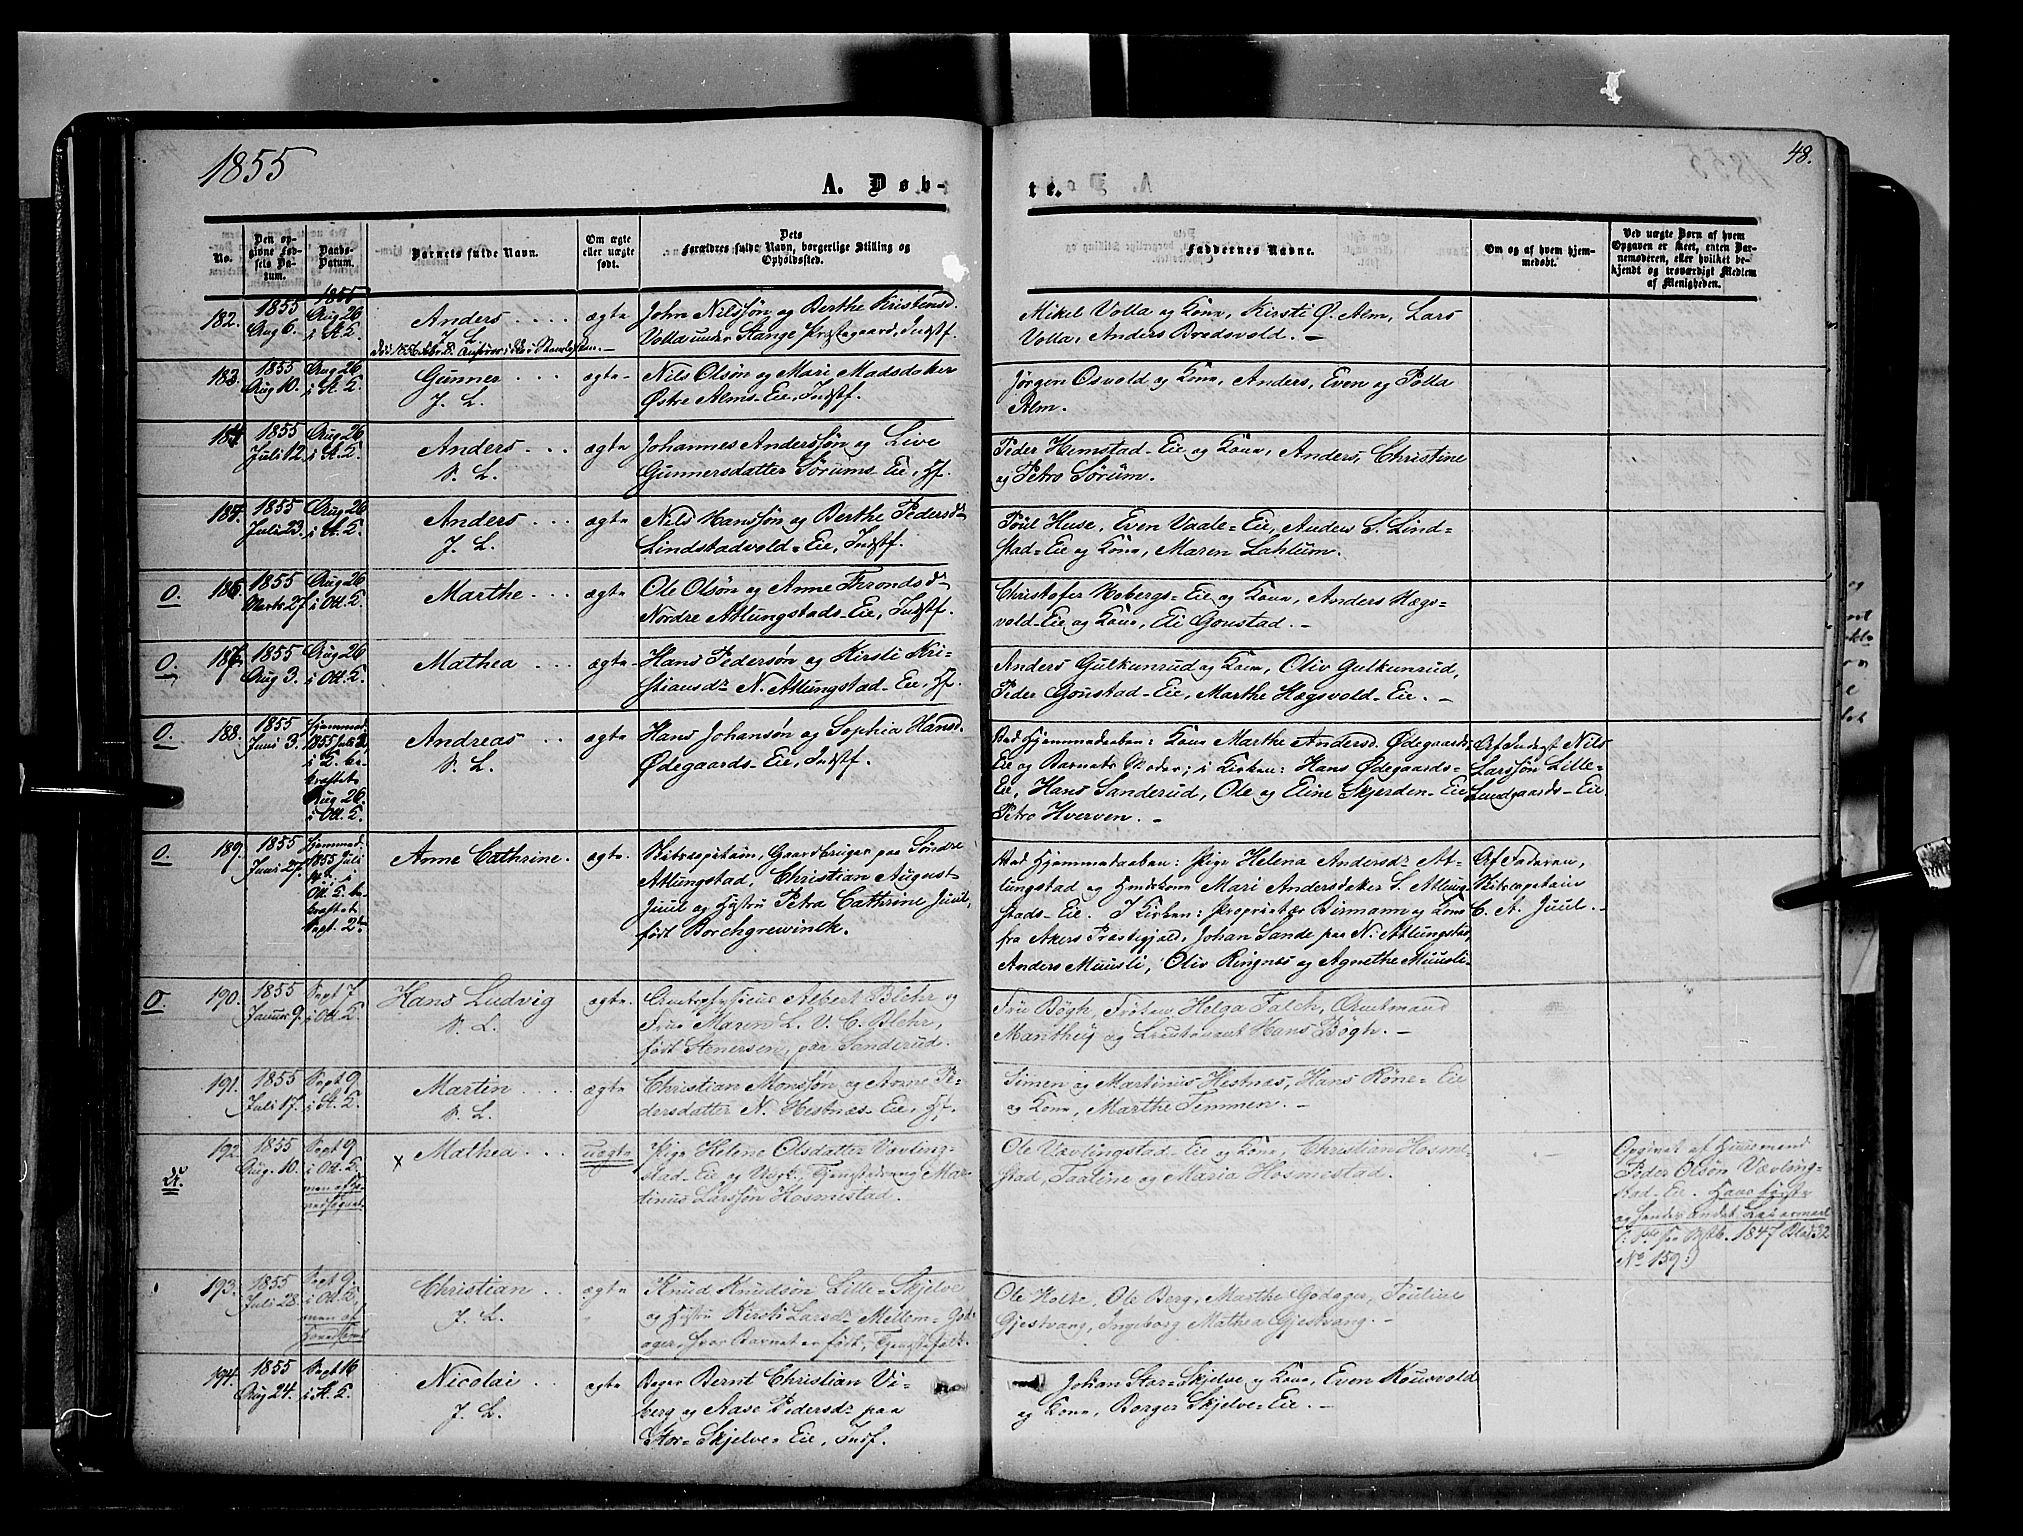 1855
48.
A. Døb-
te.
No.
Den op-
givne Fød-
sels Da-
tum.
Daabs-
Datum.
Barnets fulde Navn.
Om ægte
eller uægte
født.
Dets
Forældres fulde Navn, borgerlige Stilling og
Opholdssted.
Faddernes Navne.
Om og af hvem hjem-
medøbt.
Ved uægte Børn af hvem
Opgaven er skeet, enten Bar-
nemoderen, eller hvilket be-
kjendt og troværdigt Medlem
af Menigheden.
182.
1855
Aug 6.
1855
Aug 26
i St. K.
Anders
V. L.
ægte
John Nilssøn og Berthe Kristensd.
Volla under Stange Præstegaard, Indstf.
Mikel Volla og Kone, Kirsti Ø. Alm, Lars
Volla, Anders Bredsvold. –
183.
1855
Aug 10.
Aug 26
i St. K.
Gunner
J. L.
ægte
Nils Olsøn og Mari Madsdatter
Østre Alms-Eie, Indstf.
Jørgen Osvold og Kone, Anders, Even og Polla
Alm.
184.
1855
Juli 12.
Aug 26
i St. K.
Anders
V. L.
ægte
Johannes Anderssøn og Live
Gunnersdatter Sørums-Eie, Hf.
Peder Hemstad-Eie og Kone, Anders, Christine
og Petro Sørum.
185.
1855
Juli 23.
Aug 26
i St. K.
Anders
J. L.
ægte
Nils Hanssøn og Berthe Pedersdr
Lindstadvold-Eie, Indstf.
Poul Huse, Even Vaale-Eie, Anders S. Lind-
stad-Eie og Kone, Maren Lahlum.
O.
186.
1855
Marts 27.
Aug 26
i Ott. K.
Marthe
ægte
Ole Olsøn og Anne Trondsdr
Nordre Atlungstads-Eie, Indstf.
Christofer Hobergs-Eie og Kone, Anders Hægs-
vold-Eie og Kone, Eli Goustad. –
O.
187.
1855
Aug 3.
Aug 26
i Ott. K.
Mathea
ægte
Hans Pedersøn og Kirsti Kri-
stiansdr N. Atlungstad-Eie, Hf.
Anders Gulkunrud og Kone, Oliv Gulkunrud,
Peder Goustad-Eie, Marthe Hægsvold-Eie. –
O.
188.
1855
Juni 3.
Hjemmed.
1855 Juli
i K. be-
kræftet
Aug 26.
i Ott. K.
Andreas
V. L.
ægte
Hans Johansøn og Sophia Hansd.
Ødegaards-Eie, Indstf.
Ved Hjemmedaaben: Kone Marthe Andersd. Ødegaards-
Eie og Barnets Moder; i Kirken: Hans Ødegaards-
Eie, Hans Sanderud, Ole og Eline Skjerden-Eie
Petro Hverven. –
Af Inderst Nils
Larssøn Lille-
Lundgaards-Eie.
O.
189.
1855
Juni 27.
Hjemmed.
1855 Juli
i
Ott. K. be-
kræftet
Sept. 2.
Anne Cathrine.
ægte.
Ritcapitain, Gaardbruger paa Søndre
Atlungstad, Christian August
Juul og Hustru Petra Cathrine Juul,
født Borchgrewinck.
Ved Hjemmedaaben: Pige Helena Andersdr At-
lungstad og Huuskone Mari Andersdatter S. Atlung-
stads-Eie. I Kirken: Proprietær Birmann og Kone
fra Akers Præstegjeld, Johan Sande paa N. Atlungstad,
Anders Muusli, Oliv Ringnes og Agnethe Muusli.
Af Faderen,
Ritcapitain
C. A. Juul. –
O.
190.
1855
Januar 9.
Sept 7.
i Ott. K.
Hans Ludvig
V. L.
ægte.
Amtsfysicus Albert Blehr og
Frue Maren L. V. C. Blehr,
født Stenersen, paa Sanderud.
Fru Bøgh, Frøken Helga Falch, Amtmand
Manthey og Lieutenant Hans Bøgh. –
191.
1855
Juli 17.
Sept 9.
i St. K.
Martin
V. L.
ægte
Christian Monssøn og Anne Pe-
dersdatter N. Hestnæs-Eie, Hf.
Simen og Martinus Hestnæs, Hans Røne-Eie
og Kone, Marthe Temmen. –
U.
192.
1855
Aug. 10.
Sept 9
i Ott. K.
x
Mathea
uægte
Pige Helene Olsdatter Vævling-
stad-Eie og Ungk., Tjenestedreng Mar-
tinus Larssøn Hosmestad.
Ole Vævlingstad-Eie og Kone, Christian Hosme-
stad, Taaline og Maria Hosmestad.
Opgivet af Huusmand
Peder Olsøn Vævling-
stad-Eie. Hans første
og hendes andet Leiermaal
1847 Blad 32
No 159.)
193.
1855
Juli 28.
Sept 9.
i Ott. K.
Christian
J. L.
ægte
Knud Knudsøn Lille-Skjelve
og Hustru Kirsti Larsdr Mellem-God-
ager, hvor Barnet er født, Tjenestefolk.
Ole Holte, Ole Berg, Marthe Godager, Pouline
Gjestvang, Ingeborg Mathea Gjestvang. –
194.
1855
Aug 24.
Sept 16
i St. K.
Nicolai
J. L.
ægte
Bager Bernt Christian Vi-
berg og Aase Pedersdr paa
Stor-Skjelve-Eie, Indf.
Johan Stor-Skjelve og Kone, Even Rousvold
og Kone, Borger Skjelve-Eie. –